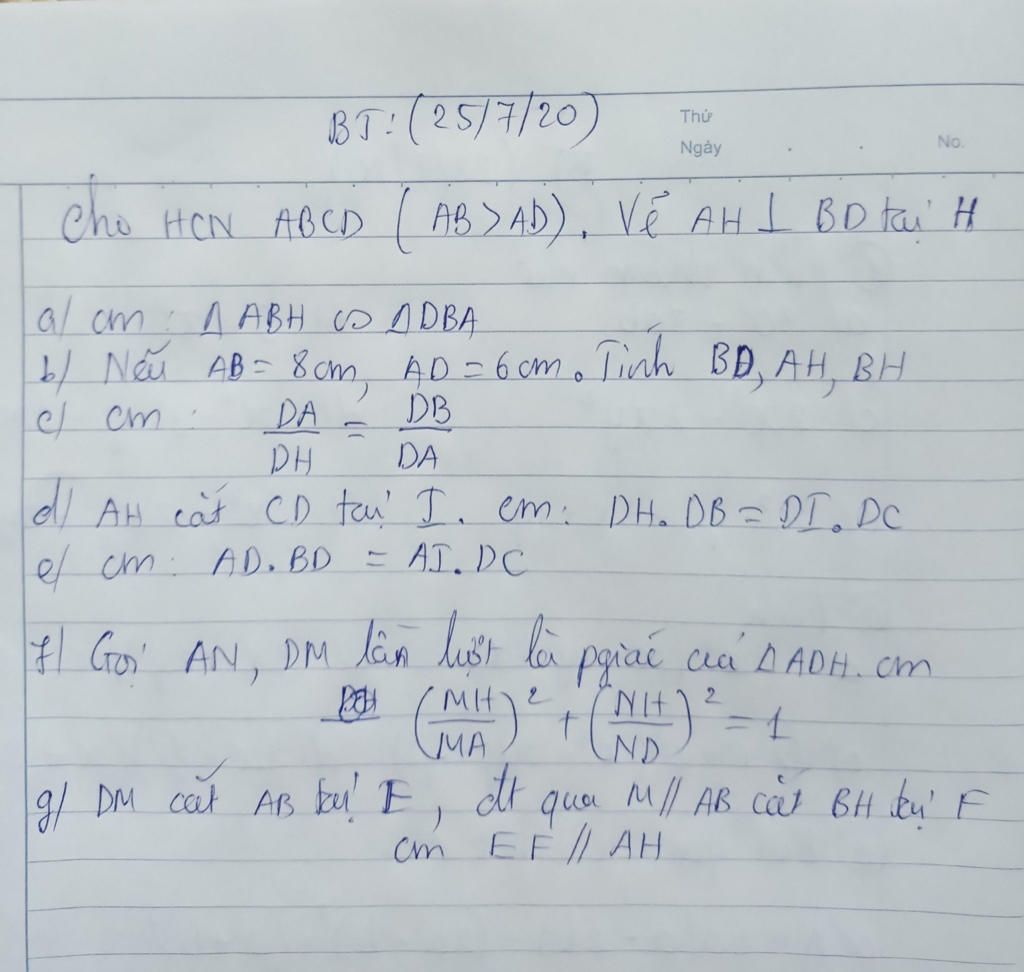 BT: (25/7/20)
Thứ
Ngày . . No.
Cho HCN ABCD (AB > AD). Vẽ AH ⊥ BD tại H
a/ cm: Δ ABH ∽ ΔDBA
b/ Nếu AB = 8cm, AD = 6cm. Tính BD, AH, BH
c/ cm: DA/DH = DB/DA
d/ AH cắt CD tại I. cm: DH. DB = DI. DC
e/ cm: AD. BD = AI. DC
f/ Gọi AN, DM lần lượt là pgiác của ΔADH. cm
(MH/MA)² + (NH/ND)² = 1
g/ DM cắt AB tại E, đt qua M // AB cắt BH tại F
cm EF // AH